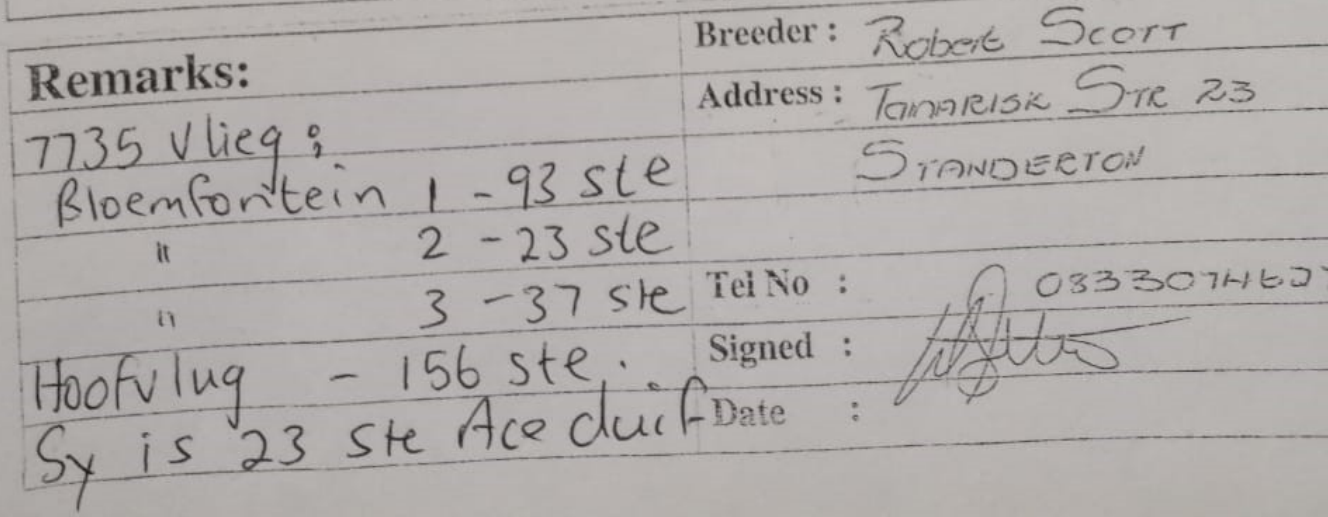 Remarks:
7735 Vlieg:
Bloemfontein 1 - 93 ste
" 2 - 23 ste
" 3 - 37 ste
Hoofvlug - 156 ste.
Sy is 23 ste Ace duif
Breeder : Robert Scott
Address : Tamarisk Str 23
STANDERTON
Tel No :
Signed :
Date :